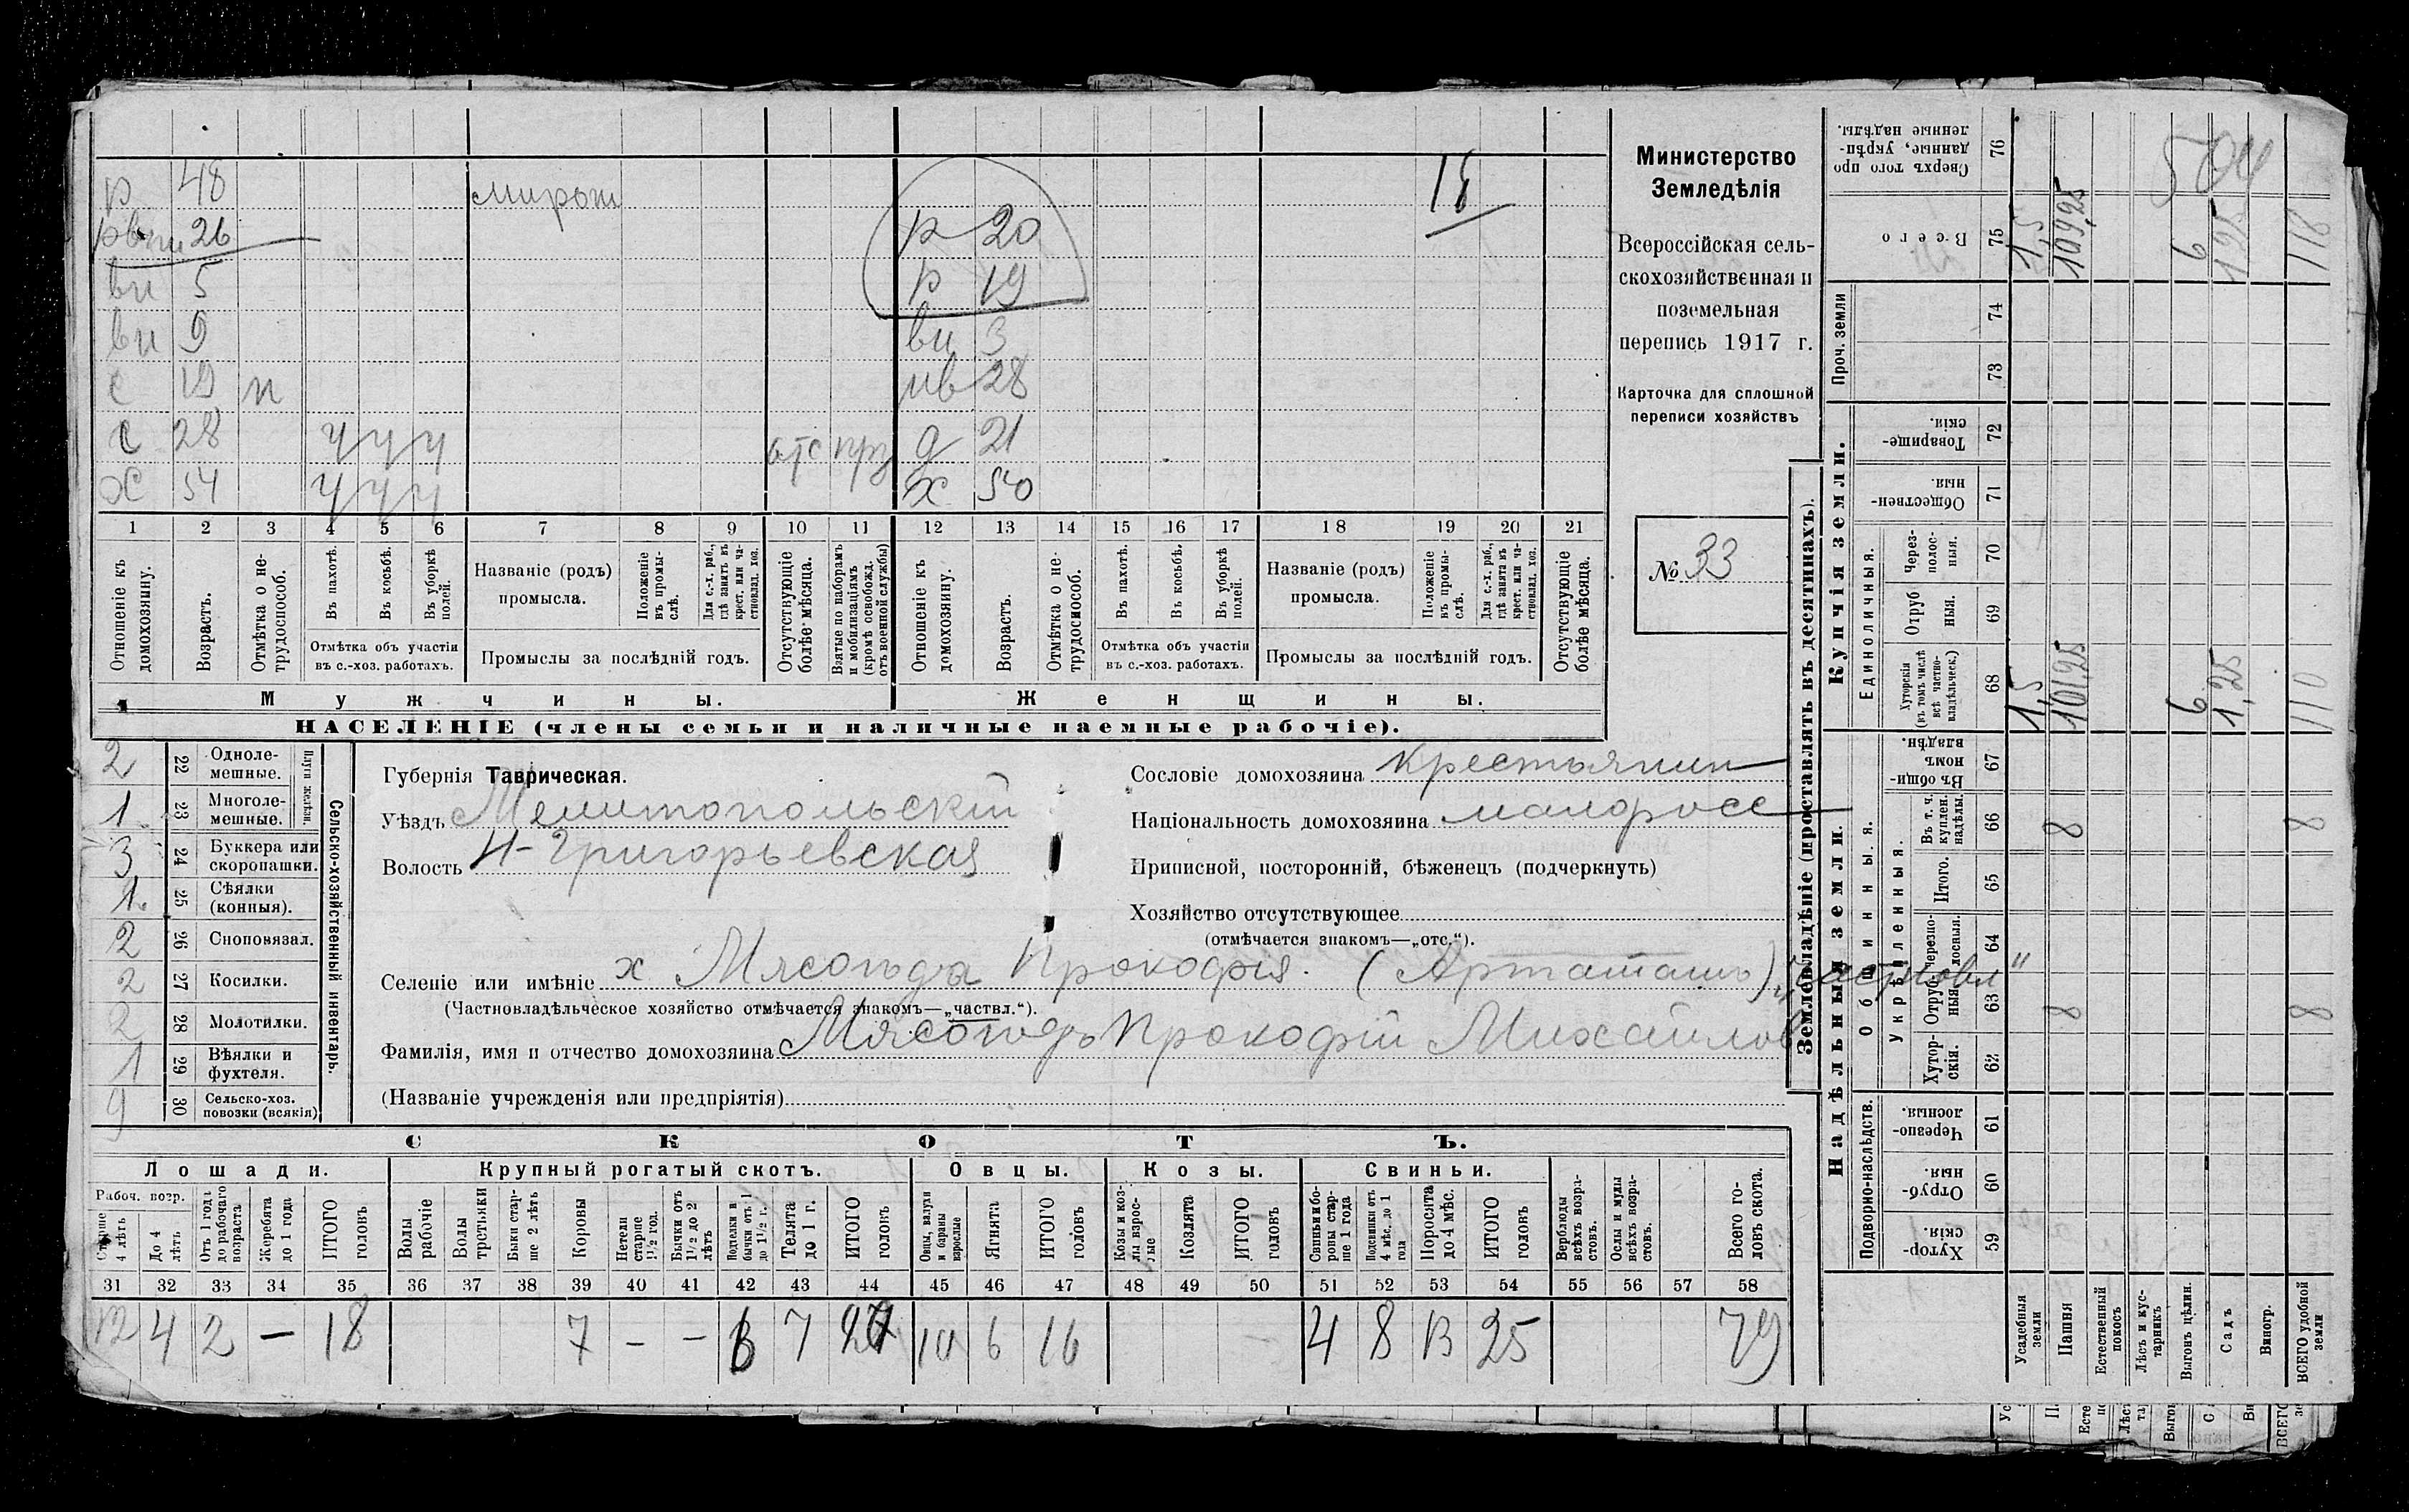 р 48 мирош 18
рвпи 26 р 20
ви 5 р 19
ви 9 ви 3
с 19 н ив 28
с 28 ч ч ч отс прз д 21
х 54 ч ч ч х 50
1 2 3 4 5 6 7 8 9 10 11 12 13 14 15 16 17 18 19 20 21
Отношеніе къ домохозяину.
Возрастъ.
Отмѣтка о не-трудоспособ.
Въ пахотѣ.
Въ косьбѣ.
Въ уборкѣ полей.
Отмѣтка объ участіи въ с.-хоз. работахъ.
Названіе (родъ) промысла.
Положеніе въ промы-слѣ.
Для с.-х. раб., гдѣ занятъ въ крест. или ча-стновлад. хоз.
Промыслы за послѣдній годъ.
Отсутствующіе болѣе мѣсяца.
Взятые по наборамъ и мобилизаціямъ (кромѣ освобожд. отъ военной службы)
Отношеніе къ домохозяину.
Возрастъ.
Отмѣтка о не-трудоспособ.
Въ пахотѣ.
Въ косьбѣ.
Въ уборкѣ полей.
Отмѣтка объ участіи въ с.-хоз. работахъ.
Названіе (родъ) промысла.
Положеніе въ промы-слѣ.
Для с.-х. раб., гдѣ занята въ крест. или ча-стновлад. хоз.
Промыслы за послѣдній годъ.
Отсутствующіе болѣе мѣсяца.
Мужчины. Женщины.
НАСЕЛЕНІЕ (члены семьи и наличные наемные рабочіе).
Министерство
Земледѣлія
Всероссійская сель-
скохозяйственная и
поземельная
перепись 1917 г.
Карточка для сплошной
переписи хозяйствъ
№ 33
2 22 Одноле-мешные.
1 23 Многоле-мешные.
Плуги желѣзн.
3 24 Буккера или скоропашки.
1 25 Сѣялки (конныя).
2 26 Сноповязал.
2 27 Косилки.
2 28 Молотилки.
1 29 Вѣялки и фухтеля.
9 30 Сельско-хоз. повозки (всякія)
Сельско-хозяйственный инвентарь.
Губернія Таврическая.
Уѣздъ Мелитопольскій
Волость Н-Григорьевская
Сословіе домохозяина крестьянин
Національность домохозяина малоросс
Приписной, посторонній, бѣженецъ (подчеркнуть)
Хозяйство отсутствующее
(отмѣчается знакомъ—„отс.“).
Селеніе или имѣніе х Мясоѣда Прокофія. (Арташъ)
(Частновладѣльческое хозяйство отмѣчается знакомъ—„частвл.“).
Фамилія, имя и отчество домохозяина Мясоѣдъ Прокофій Михайлов
(Названіе учрежденія или предпріятія)
СКОТЪ.
Лошади. Крупный рогатый скотъ. Овцы. Козы. Свиньи.
Рабоч. возр.
Старше 4 лѣтъ
До 4 лѣтъ
Отъ 1 года до рабочаго возраста
Жеребята до 1 года
ИТОГО головъ
Волы рабочіе
Волы третьяки
Быки стар-ше 2 лѣтъ
Коровы
Нетели старше 1½ год.
Бычки отъ 1½ до 2 лѣтъ
Подтелки и бычки отъ 1 до 1½ г.
Телята до 1 г.
ИТОГО головъ
Овцы, валухи и бараны взрослые
Ягнята
ИТОГО головъ
Козы и коз-лы взрос-лые
Козлята
ИТОГО головъ
Свиньи и бо-ровы стар-ше 1 года
Подсвинки отъ 4 мѣс. до 1 года
Поросята до 4 мѣс.
ИТОГО головъ
Верблюды всѣхъ возра-стовъ.
Ослы и мулы всѣхъ возра-стовъ.
Всего го-ловъ скота.
31 32 33 34 35 36 37 38 39 40 41 42 43 44 45 46 47 48 49 50 51 52 53 54 55 56 57 58
12 4 2 — 18 7 - - 6 7 20 10 6 16 4 8 13 25 79
Землевладѣніе (проставлять въ десятинахъ).
Надѣльныя земли. Купчія земли. Проч. земли
Подворно-наслѣдств.
Общинныя.
Укрѣпленныя.
Единоличныя.
Сверхъ того про-данные, укрѣп-ленные надѣлы. 76
Всего 75
74
73
Товарище-скія. 72
Обществен-ныя. 71
Через-полос-ныя. 70
Отруб-ныя. 69
Хуторскія (въ томъ числѣ всѣ частно-владѣльческ.) 68
Въ общин-номъ владѣн. 67
Въ т. ч. куплен. надѣлы. 66
Итого. 65
Черезпо-лосныя. 64
Отруб-ныя. 63
Хутор-скія. 62
Черезпо-лосныя. 61
Отруб-ныя. 60
Хутор-скія. 59
504
1,5 109,25 6 1,25 118
1,5 101,25 6 1,25 110
8 8
8 8
Усадебныя земли
Пашня
Естественный покосъ
Лѣсъ и кус-тарникъ
Выгонъ цѣлин.
Садъ
Виногр.
ВСЕГО удобной земли